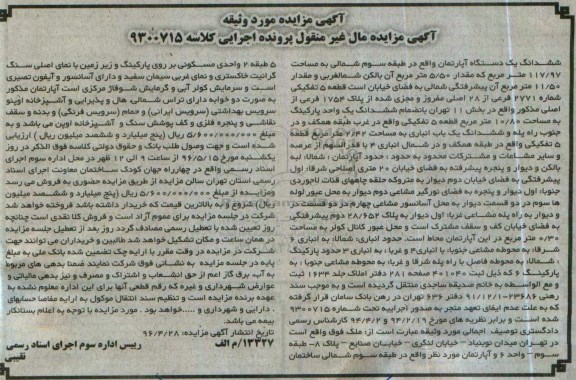 آگهی مزایده مورد وثیقه
آگهی مزایده مال غیر منقول پرونده اجرایی کلاسه ۹۳۰۰۷۱۵
ششدانگ یک دستگاه آپارتمان واقع در طبقه سوم شمالی به مساحت
۱۱۷/۹۷ متر مربع که مقدار ۵/۵۰ متر مربع آن بالکن شمالغربی و مقدار
۱۱/۵۰ متر مربع آن پیشرفتگی شمالی به فضای خیابان است قطعه ۵ تفکیکی
شماره ۲۷۷۱ فرعی از ۲۸ اصلی مفروز و مجزی شده از پلاک ۱۷۵۲ فرعی از
اصلی مذکور واقع در بخش ۱۱ تهران بانضمام ششدانگ یک واحد پارکینگ
به مساحت ۱۰/۸۰ متر مربع قطعه ۵ تفکیکی واقع در غرب طبقه همکف و در
جنوب راه پله و ششدانگ یک باب انباری به مساحت ۲/۴۲ متر مربع قطعه
۵ تفکیکی واقع در طبقه همکف و در شمال انباری ۴ با قدرالسهم از عرصه
و سایر مشاعات و مشترکات محدوده به حدود: حدود آپارتمان: شمالا، لبه
بالکن و دیوار و پنجره پیشرفته به فضای خیابان ۲۰ متری اصلاحی شرقا، اول
پیشرفتگی به فضای خیابان دوم دیوار به متروکه حلقه چاههای قنات لاجوردی
جنوبا، اول دیوار و پنجره به فضای نورگیر مشاعی دوم دیوار به محل عبور لوله
ها سوم در دو قسمت دیوار به محل آسانسور مشاعی چهارم در دو قسمت در
و دیوار به راه پله مشاعی غربا، اول دیوار به پلاک ۲۸/۶۵۲ دوم پیشرفتگی
به فضای خیابان کف و سقف مشترک است و محل عبور کانال کولر به مساحت
۰/۳۰ متر مربع در این آپارتمان محاط است. حدود انباری: شمالا، به انباری ۶
شرقا، به محوطه مشاعی جنوبا، با انباری ۴ و غربا، به انباری ۳ حدود پارکینگ
: شمالا، به محوطه فاصل با راه پله شرقا و غربا، به محوطه مشاعی جنوبا، به
پارکینگ ۶ که ذیل ثبت ۴۰۱۰۴۰ صفحه ۲۸۱ دفتر املاک جلد ۱۶۳۴ ثبت
و مع الواسطه به خانم صدیقه ساجدی منتقل گردیده است و به موجب سند
رهنی ۲۳۶۸۶-۹۱/۱۲/۱۰ دفتر ۶۳۶ تهران در رهن بانک سامان قرار گرفته
که به علت عدم ایفای تعهد منجر به صدور اجراییه تحت شماره ۹۳۰۰۷۱۵
شده است و برابر نظریه های مورخ ۹۴/۲/۱۹ و ۹۴/۴/۲ کارشناس رسمی
دادگستری توصیف اجمالی مورد وثیقه عبارت است از: ملک فوق واقع است
در تهران میدان نوبنیاد – خیابان لنگری – خیابان صنایع – پلاک ۸- طبقه
سوم – واحد ۶ و آپارتمان مورد نظر واقع در طبقه سوم شمالی ساختمان
۵ طبقه ۲ واحدی مسکونی بر روی پارکینگ و زیر زمین با نمای اصلی سنگ
گرانیت خاکستری و نمای غربی سیمان سفید و دارای آسانسور و آیفون تصویری
است و سرمایش کولر آبی و گرمایش شوفاژ مرکزی است آپارتمان مذکور
به صورت دو خوابه دارای تراس شمالی، هال و پذیرایی و آشپزخانه اوپن و
سرویس بهداشتی (سرویس ایرانی) و حمام (سرویس فرنگی) و بدنه و سقف
نقاشی و پنجره فلزی و کف پوشش سنگ و آشپزخانه اوپن می باشد و به
مبلغ ۵/۶۰۰/۰۰۰/۰۰۰ ریال (پنج میلیارد و ششصد میلیون ریال) ارزیابی
شده است و جهت وصول طلب بانک و حقوق دولتی کلاسه فوق الذکر در روز
یکشنبه مورخ ۹۶/۵/۱۵ از ساعت ۹ الی ۱۲ ظهر در محل اداره سوم اجرای
اسناد رسمی واقع در چهارراه جهان کودک ساختمان معاونت اجرای اسناد
رسمی استان تهران سالن مزایده از طریق مزایده حضوری به فروش می رسد
مزایده از مبلغ ۵/۶۰۰/۰۰۰/۰۰۰ ریال (پنج میلیارد و ششصد میلیون
ریال) شروع و به بالاترین قیمت که خریدار داشته باشد فروخته خواهد شد
شرکت در جلسه مزایده برای عموم آزاد است و فروش کلا نقدی است چنانچه
روز تعیین شده با تعطیل رسمی مصادف گردد روز بعد از تعطیل جلسه مزایده
در همان ساعت و مکان تشکیل خواهد شد طالبین و خریداران می توانند جهت
شرکت در مزایده در وقت مقرر با ارایه چک تضمین شده بانک ملی به مبلغ
پایه در جلسه مزایده به نشانی فوق شرکت نمایند ضمنا بدهی های مربوط
به آب برق گاز اعم از حق انشعاب و اشتراک و مصرف و نیز بدهی مالیاتی و
عوارض شهرداری و غیره که رقم قطعی آنها برای این اداره معلوم نشده به
عهده برنده مزایده است و تنظیم سند انتقال موکول به ارایه مفاصا حسابهای
دارایی و شهرداری و .....خواهد بود. مورد مزایده با توجه به اعلام بستانکار
بیمه می باشد.
تاریخ انتشار آگهی مزایده: ۹۶/۴/۲۸
۱۳۳۲۷/م الف
رییس اداره سوم اجرای اسناد رسمی
نقیبی